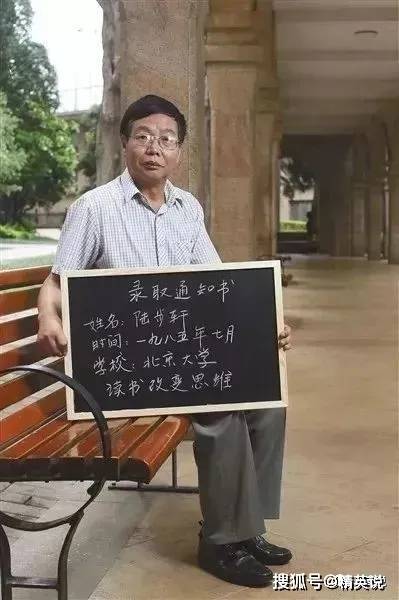 录取通知书
姓名：陆步轩
时间：一九八五年七月
学校：北京大学
读书改变思维
搜狐号@精英说